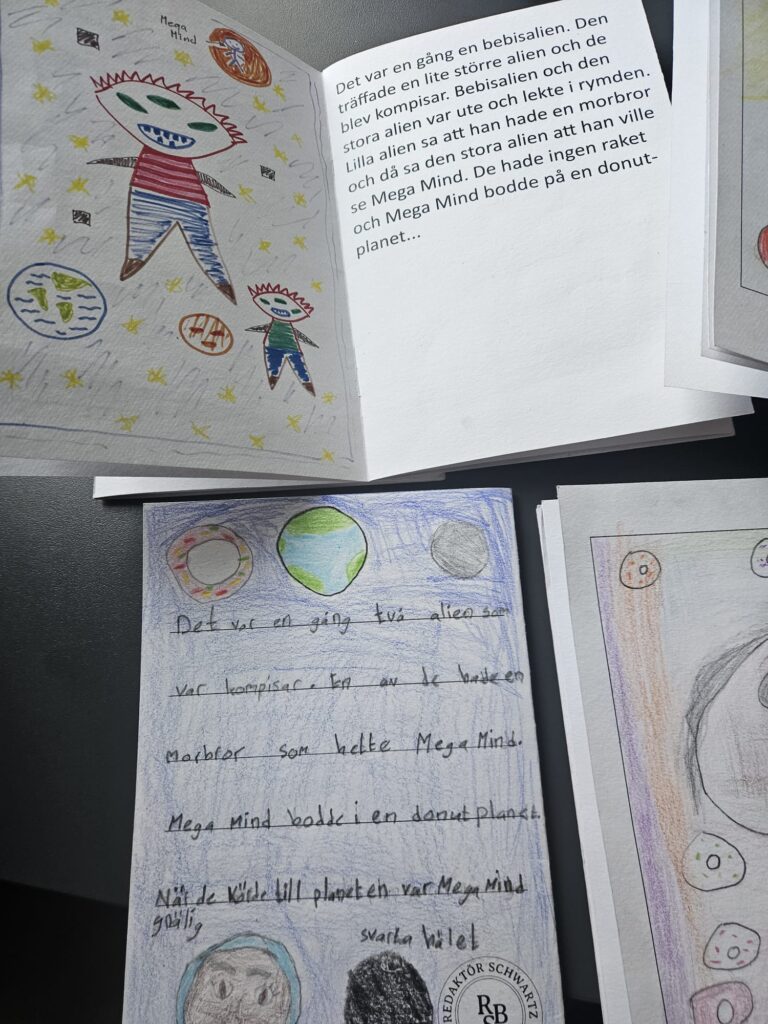 Mega
Mind
Det var en gång en bebisalien. Den
träffade en lite större alien och de
blev kompisar. Bebisalien och den
stora alien var ute och lekte i rymden.
Lilla alien sa att han hade en morbror
och då sa den stora alien att han ville
se Mega Mind. De hade ingen raket
och Mega Mind bodde på en donut-
planet...
Det var en gång två alien som
var kompisar. En av de hade en
morbror som hette Mega Mind.
Mega Mind bodde i en donut planet.
När de körde till planeten var Mega Mind
gnälig
svarta hålet
REDAKTÖR SCHWARTZ
RSB